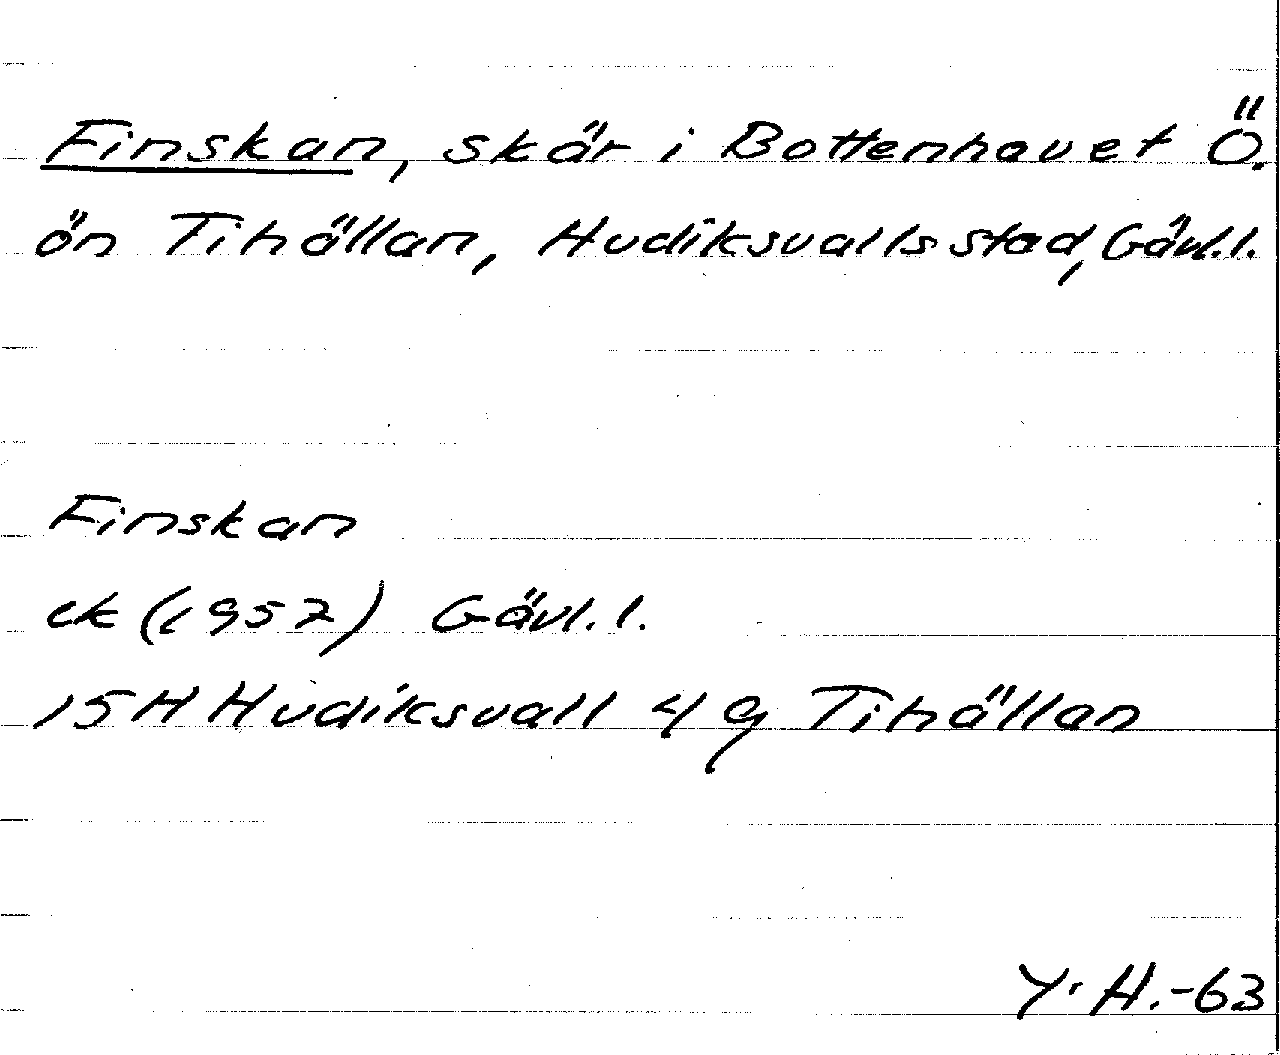 Finskan, skär i Bottenhavet Ö.
ön Tihällan, Hudiksvalls stad, Gävl.l.
Finskan
ek (1952) Gävl.l.
15H Hudiksvall 4g Tihällan
Y.H.-63